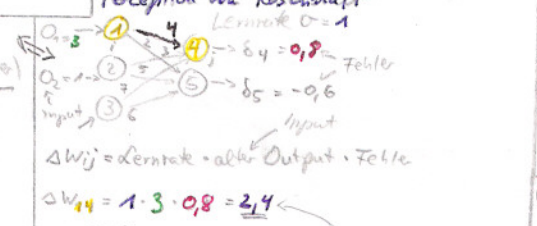 Lernrate σ = 1
O₁ = 3 → 1 4
2 3 4 → δ₄ = 0,8
Fehler
O₂ = 1 → 2 5
5 → δ₅ = -0,6
7
Input 3 6
Input
ΔWij = Lernrate · alter Output · Fehler
ΔW₁₄ = 1 · 3 · 0,8 = 2,4